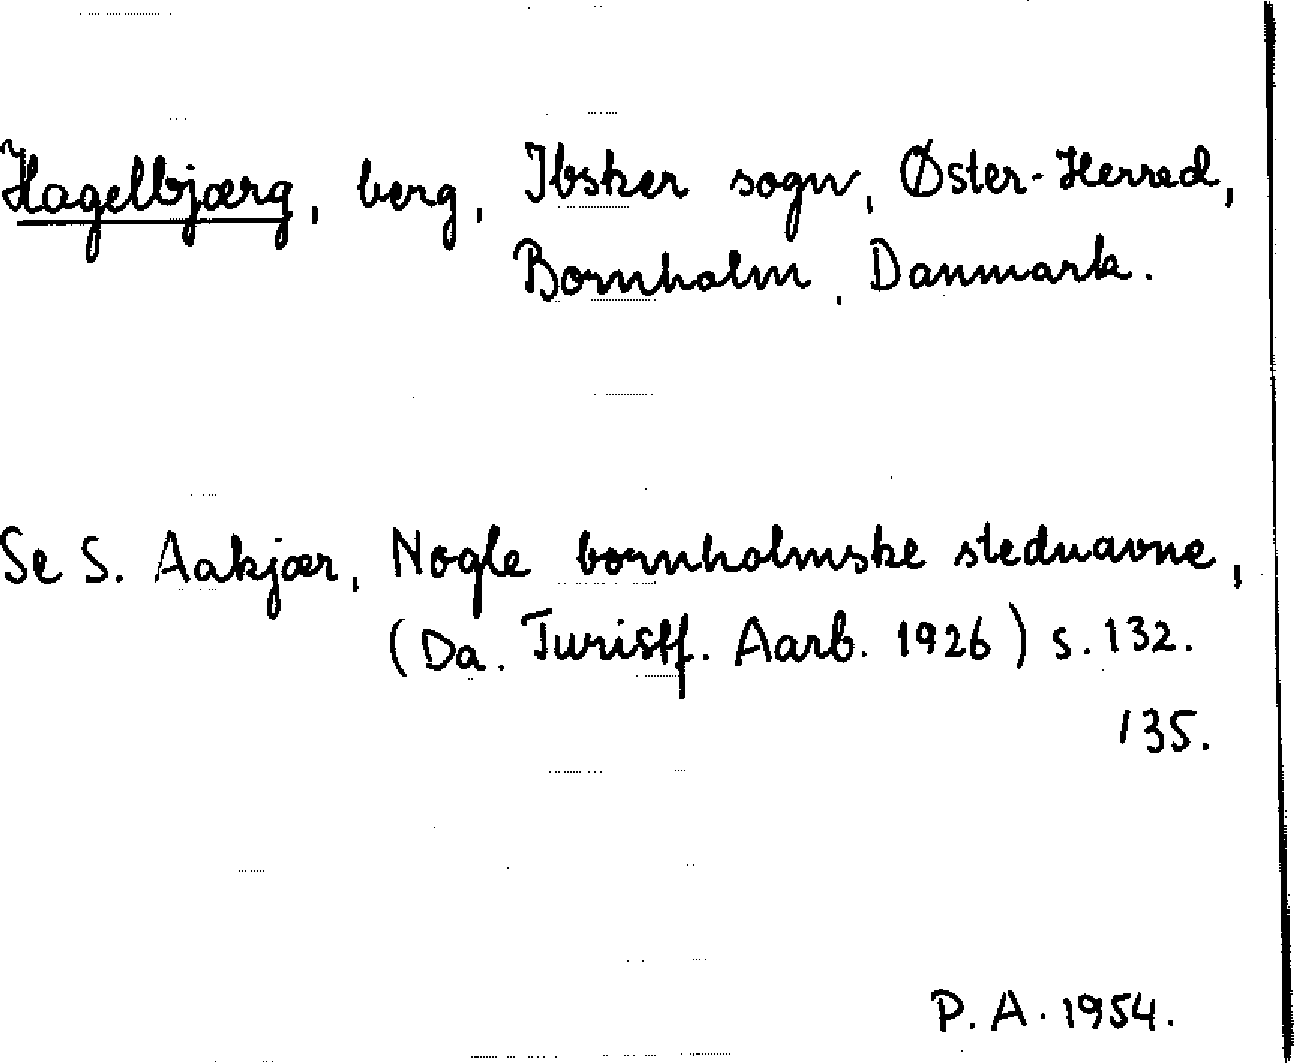 Hagelbjærg, berg, Ibsker sogn, Øster-Herred,
Bornholm, Danmark.
Se S. Aakjær, Nogle bornholmske stednavne,
(Da. Turistf. Aarb. 1926) s. 132.
135.
P. A. 1954.